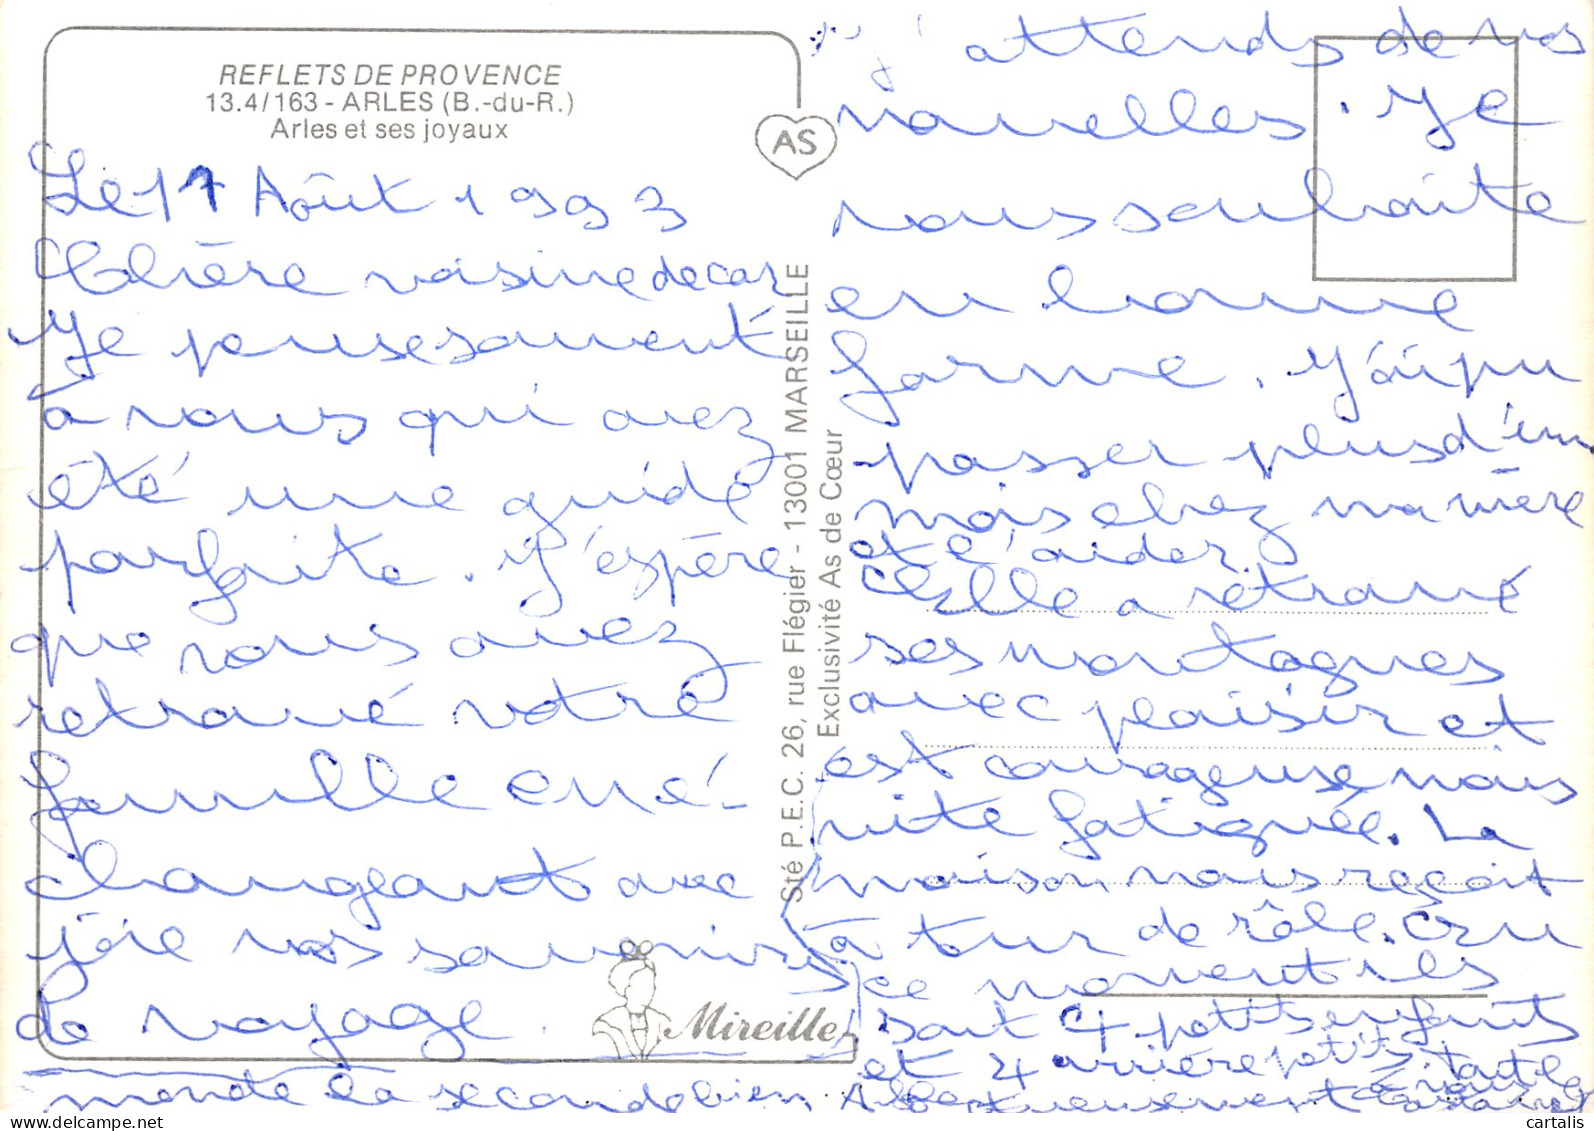 REFLETS DE PROVENCE
13.4/163 - ARLES (B.-du-R.)
Arles et ses joyaux
AS
Le 17 Août 1993
Chère voisine de car
Je pense souvent
à vous qui avez
été une guide
parfaite. J'espère
que vous avez
retrouvé votre
famille en é-
changeant avec
joie vos souvenirs
de voyage.
Mireille
Sté P.E.C. 26, rue Flégier - 13001 MARSEILLE
Exclusivité As de Cœur
J'attends de vos
nouvelles. Je
vous souhaite
en bonne
forme. J'ai pu
passer plus d'un
mois chez ma mère
et l'aider.
Elle a retrouvé
ses montagnes
avec plaisir et
est courageuse mais
vite fatiguée. La
maison nous reçoit
à tour de rôle. En
ce moment ils
sont 4 petits enfants
et 4 arrière petits tout le
monde la seconde bien
cartalis